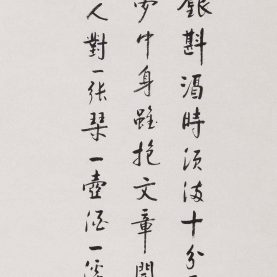 銀斟酒時須滿十分
夢中身雖抱文章開
人對一張琴一壺酒一溪